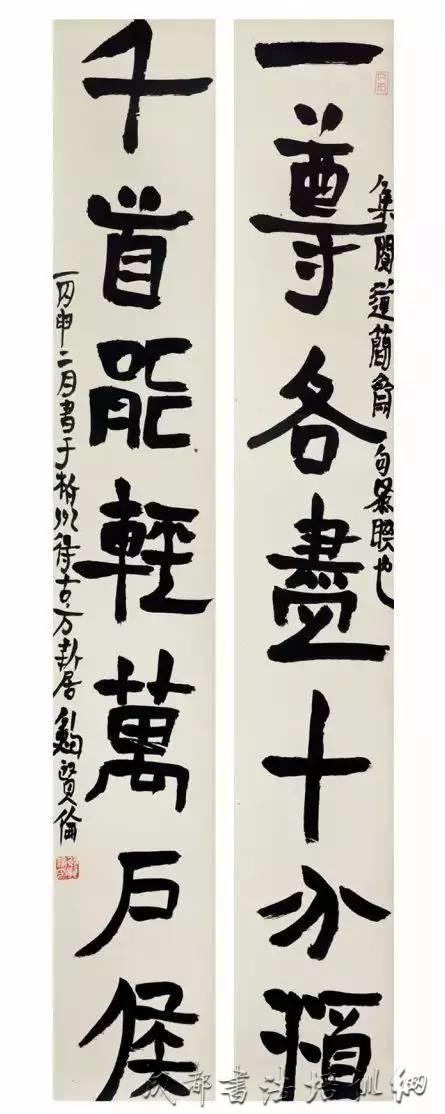 一尊各盡十分
集聞道簡齋句為聯也
千首能輕萬戶侯
丙申二月書于杭州得古方居鮑賢倫
成都書法培训網